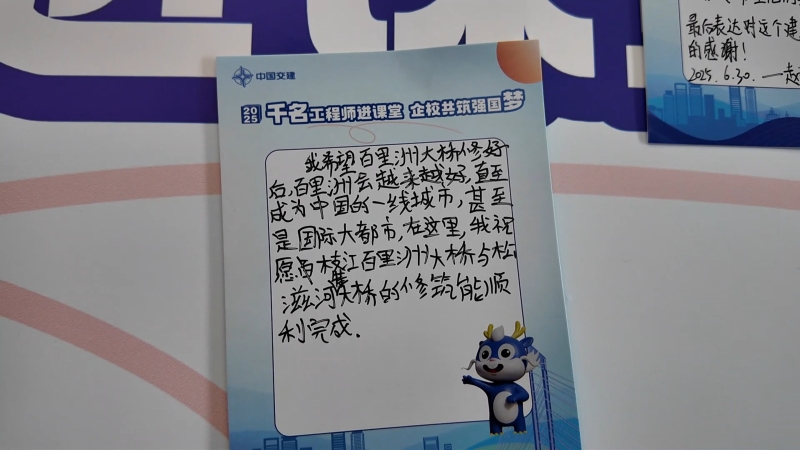 中国交建
2025 千名工程师进课堂 企校共筑强国梦
我希望百里洲大桥修好
后,百里洲会越来越好,直至
成为中国的一线城市,甚至
是国际大都市,在这里,我祝
愿 枝江百里洲大桥与松
滋河大桥的修筑能顺
利完成.
最后表达对这个建
的感谢!
2025.6.30.—赵